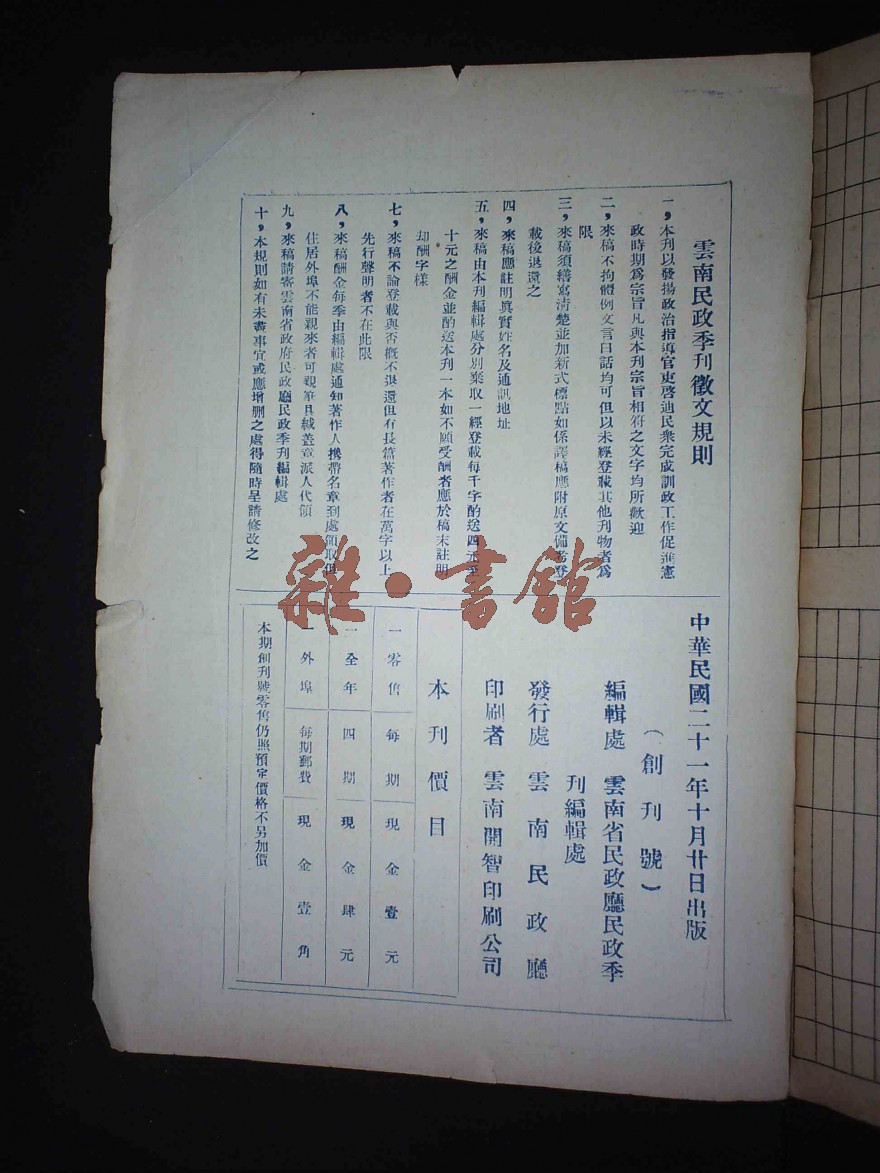 雲南民政季刊徵文規則
一，本刊以發揚政治指導官吏啓迪民衆完成訓政工作促進憲
政時期爲宗旨凡與本刊宗旨相符之文字均所歡迎
二，來稿不拘體例文言白話均可但以未經登載其他刊物者爲
限
三，來稿須繕寫清楚並加新式標點如係譯稿應附原文備考登
載後退還之
四，來稿應註明真實姓名及通訊地址
五，來稿由本刊編輯處分別棄取一經登載每千字酌送四元至
十元之酬金並酌送本刊一本如不願受酬者應於稿末註明
却酬字樣
七，來稿不論登載與否概不退還但有長篇著作者在萬字以上
先行聲明者不在此限
八，來稿酬金每季由編輯處通知著作人携帶名章到處領取但
住居外埠不能親來者可親筆具緘蓋章派人代領
九，來稿請寄雲南省政府民政廳民政季刊編輯處
十，本規則如有未盡事宜或應增删之處得隨時呈請修改之
中華民國二十一年十月廿日出版
（創刊號）
編輯處 雲南省民政廳民政季
刊編輯處
發行處 雲南民政廳
印刷者 雲南開智印刷公司
本刊價目
一零售 每期 現金壹元
一全年 四期 現金肆元
一外埠 每期郵費 現金壹角
本期創刊號零售仍照預定價格不另加價
雜·書館